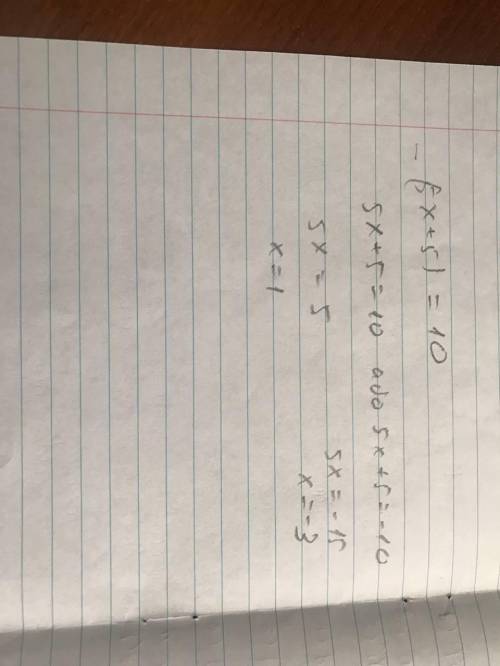 - (5x+5) = 10
5x+5=10 ado 5x+5=-10
5x = 5 5x=-15
x=1 x=-3